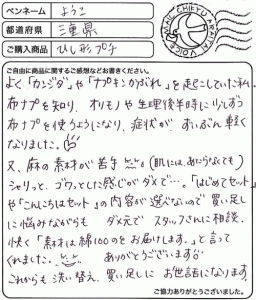 ペンネーム ようこ
都道府県 三重県
ご購入商品 ひし形プチ
MHL CHIEKUTARAI VOICE
ご自由に商品に関するご感想などお書きください。
よく「カンジダ」や「ナプキンかぶれ」を起こしていた私。
布ナプを知り、オリモノや生理後半時に少しずつ
布ナプを使うようになり、症状が ずいぶん軽く
なりました。
又、麻の素材が苦手 (肌には、あたらなくても)
シャリっと、ゴワっとした感じがダメで…。「はじめてセット」
や「こんにちはセット」の内容が選べないので 買い足し
に悩みながらも ダメ元で スタッフさんに相談。
快く「素材は綿100のをお届けします。」と言って
くれました。 ありがとうございます。
これからも 洗い替え、買い足しに お世話になります。
ご協力ありがとうございました。